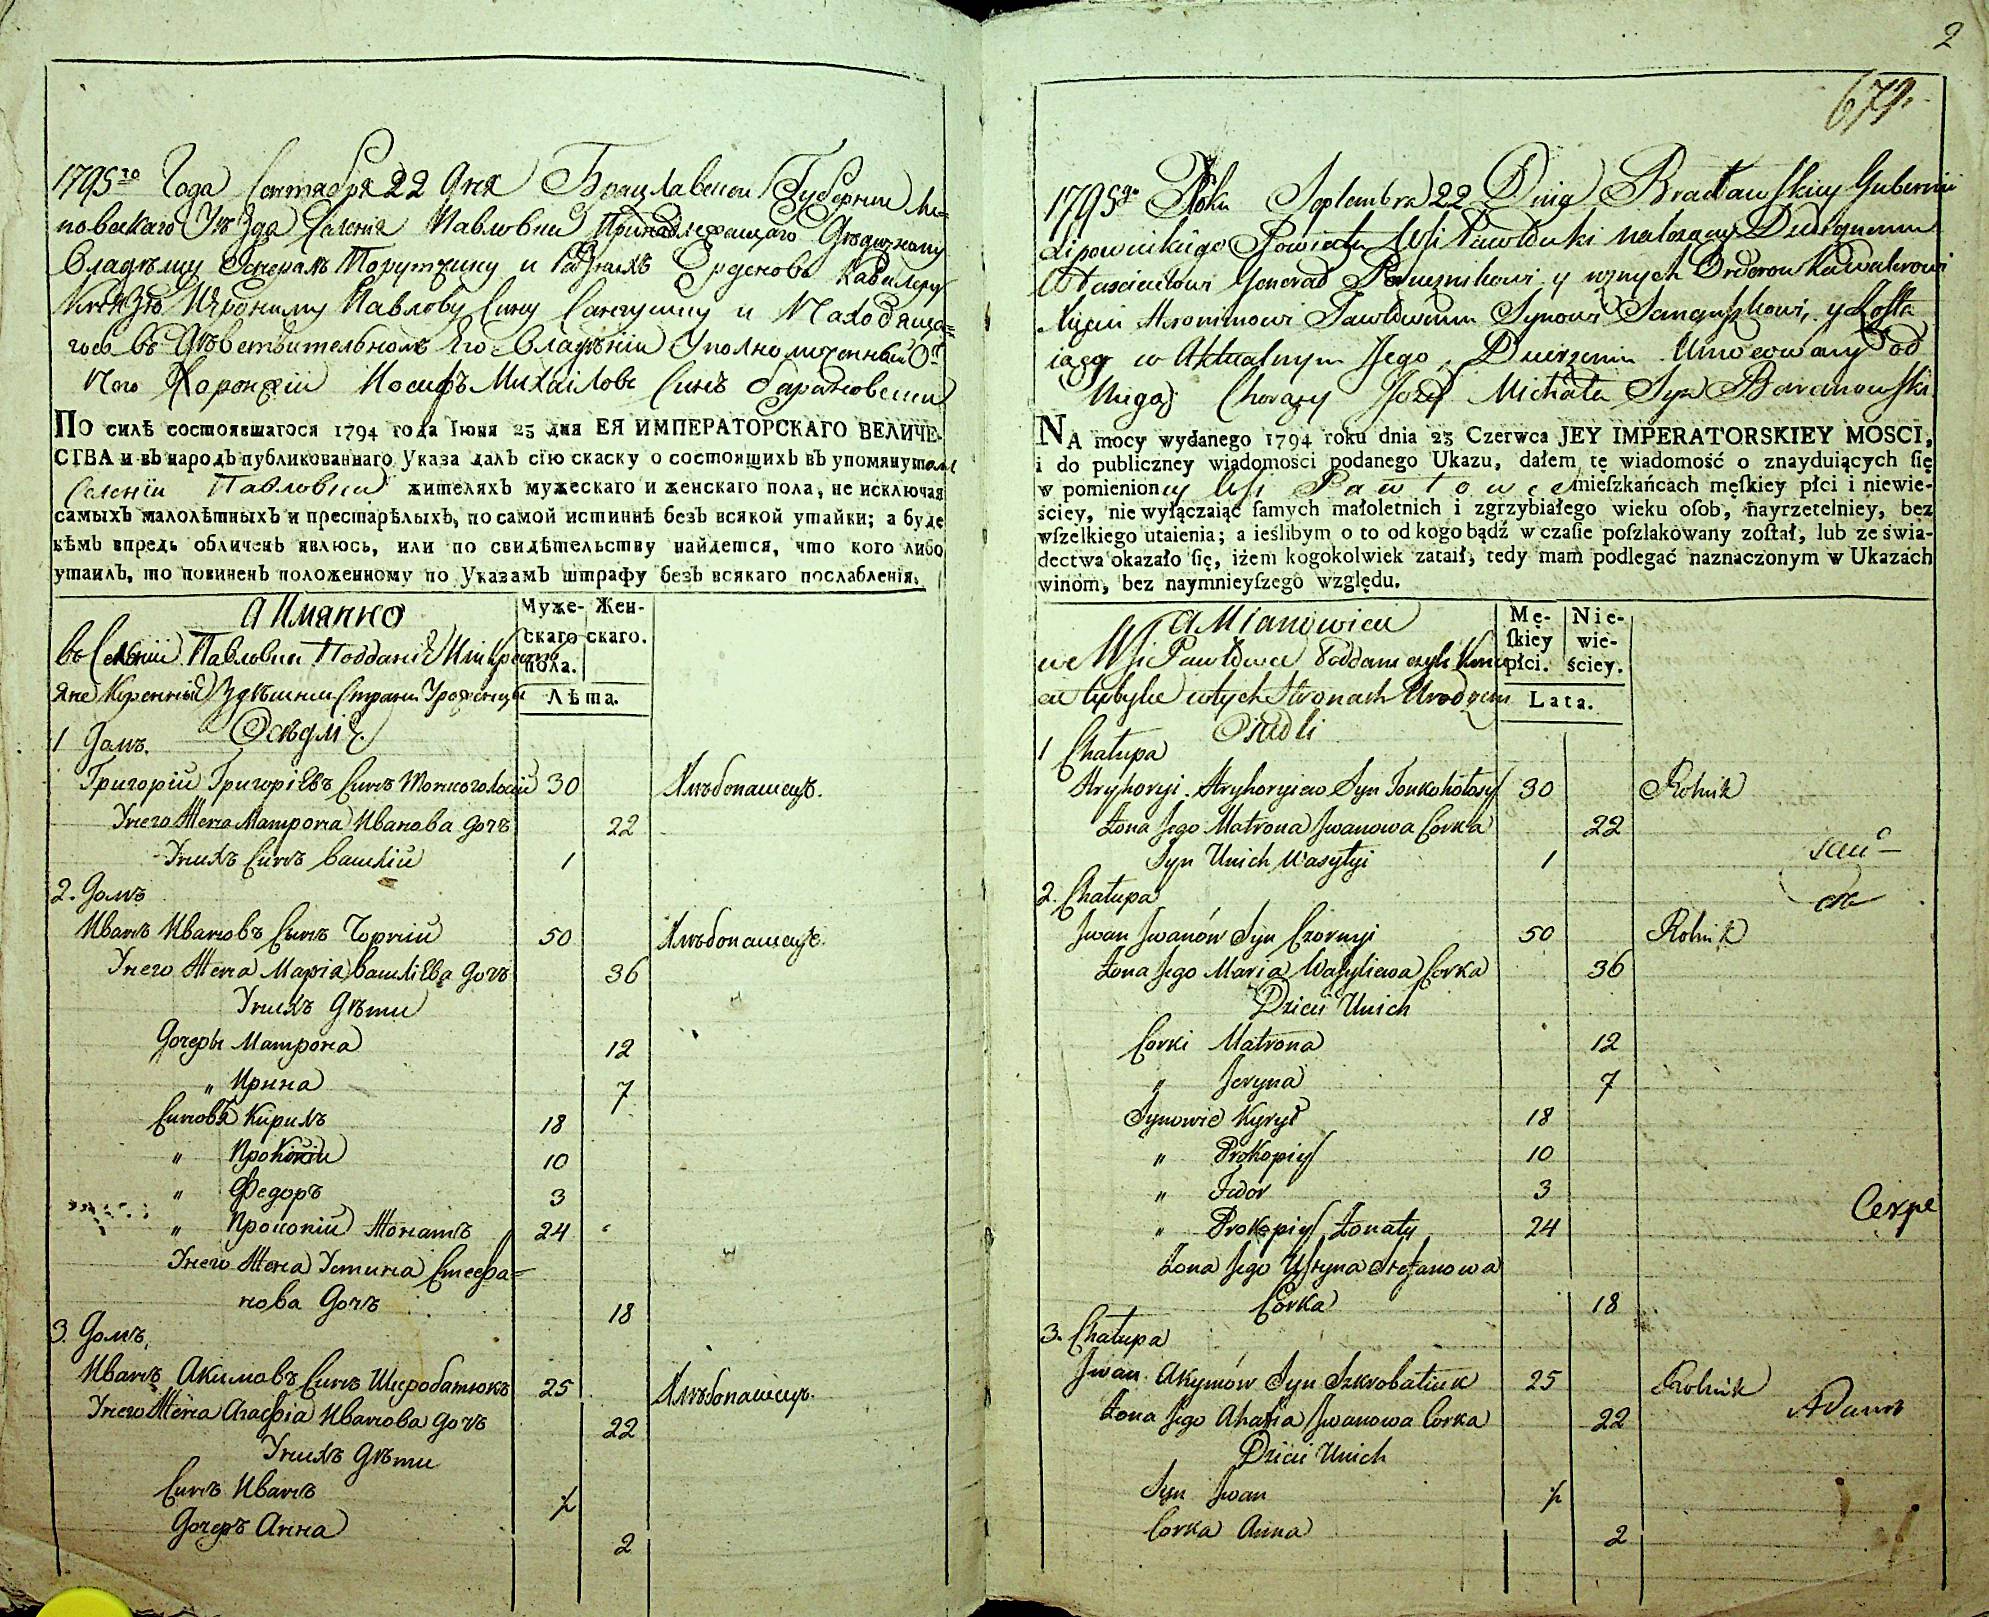 1795го Года Сентября 22 Дня Брацлавской Губернии Ли=
повскаго Уѣзда Селенія Павловки Принадлежащаго Дѣдичному
Владѣлцу Генералъ Порутчику и Разныхъ Орденовъ Кавалеру
Князь Иерониму Павлову Сину Сангушку и Находяща=
гося въ Дѣйствительномъ Его Владѣніи Уполномоченный Отъ
Него Хоронжій Иосифъ Михайловъ Синъ Барановский
ПО силѣ состоявшагося 1794 года Іюня 23 дня ЕЯ ИМПЕРАТОРСКАГО ВЕЛИЧЕ-
СТВА и въ народъ публикованнаго Указа далъ сію скаску о состоящихъ въ упомянутомъ
Селеніи Павловки жителяхъ мужескаго и женскаго пола, не исключая
самыхъ малолѣтныхъ и престарѣлыхъ, по самой истиннѣ безъ всякой утайки; а буде
кѣмъ впредь обличенъ явлюсь, или по свидѣтельству найдется, что кого либо
утаилъ, то повиненъ положенному по Указамъ штрафу безъ всякаго послабленія.
А Имянно
въ Селеніи Павловки Подданіе Или Крестья
яне Коренный Здѣшнии Страни Уроженцы
Осѣдліе
Муже-
скаго
пола.
Жен-
скаго.
Лѣта.
1 Домъ.
Григорій Григоріевъ Синъ Тонкоголосий 30 Хлѣбопашецъ.
У него Жена Матрона Иванова дочь 22
У нихъ Синъ Василій 1
2. Домъ
Иванъ Ивановъ Сынъ Чорний 50 Хлѣбопашецъ.
У него Жена Марія Василіева дочь 36
У нихъ Дѣти
Дочеры Матрона 12
„ Ирина 7
Синовя Кирилъ 18
„ Прокопій 10
„ Федоръ 3
„ Прокопій Жонатъ 24
У него Жена Устина Стефа=
нова Дочь 18
3. Домъ.
Иванъ Акимовъ Синъ Шкробатюкъ 25 Хлѣбопашецъ.
У него Жена Агафія Иванова дочь 22
У нихъ Дѣти
Синъ Иванъ ½
Дочеръ Анна 2
2
672.
1795go Roku Septembra 22 Dnia Bracławskiey Gubernii
Lipowieckiego Powiatu Wsi Pawłowki nalezącey Dziedzicznemu
Włascicielowi Generał Porucznikowi y roznych Orderow Kawalerowi
Xięciu Hieronimowi Pawłowemu Synowi Sanguszkowi, y Zosta
iącey w Aktualnym Jego Dzierzeniu Umocowany od
Niego Chorąży Jozef Michała Syn Baranowski
NA mocy wydanego 1794 roku dnia 23 Czerwca JEY IMPERATORSKIEY MOSCI,
i do publiczney wiadomości podanego Ukazu, dałem tę wiadomość o znayduiących ſię
w pomienioney Wsi Pawłowce mieſzkańcach męſkiey płci i niewie-
ściey, nie wyłączaiąc ſamych małoletnich i zgrzybiałego wieku oſob, nayrzetelniey, bez
wſzelkiego utaienia; a ieślibym o to od kogo bądź w czaſie poſzlakowany zoſtał, lub ze świa-
dectwa okazało ſię, iżem kogokolwiek zataił, tedy mam podlegać naznaczonym w Ukazach
winom, bez naymnieyſzego względu.
A Mianowicie
we Wsi Pawłowce Poddani czyli Kmie
cie tubylce w tych Stronach Urodzeni
Osiadli
Mę-
ſkiey
płci.
Nie-
wie-
ściey.
Lata.
1 Chałupa
Hryhoryi Hryhoryiew Syn Tonkohołosy 30 Rolnik
Zona Jego Matrona Jwanowa Corka 22
Syn Unich Wasylyi 1
2. Chałupa
Jwan Jwanów Syn Czornyi 50 Rolnik
Zona Jego Maria Wasyliewa Corka 36
Dzieci Unich
Corki Matrona 12
„ Jeryna 7
Synowie Kyrył 18
„ Prokopiy 10
„ Fedor 3
„ Prokopiy Zonaty 24
Zona Jego Ustyna Stefanowa
Corka 18
3. Chałupa
Jwan Akymów Syn Szkrobatiuk 25 Rolnik
Zona Jego Ahafia Jwanowa Corka 22
Dzieci Unich
Syn Jwan ½
Corka Anna 2